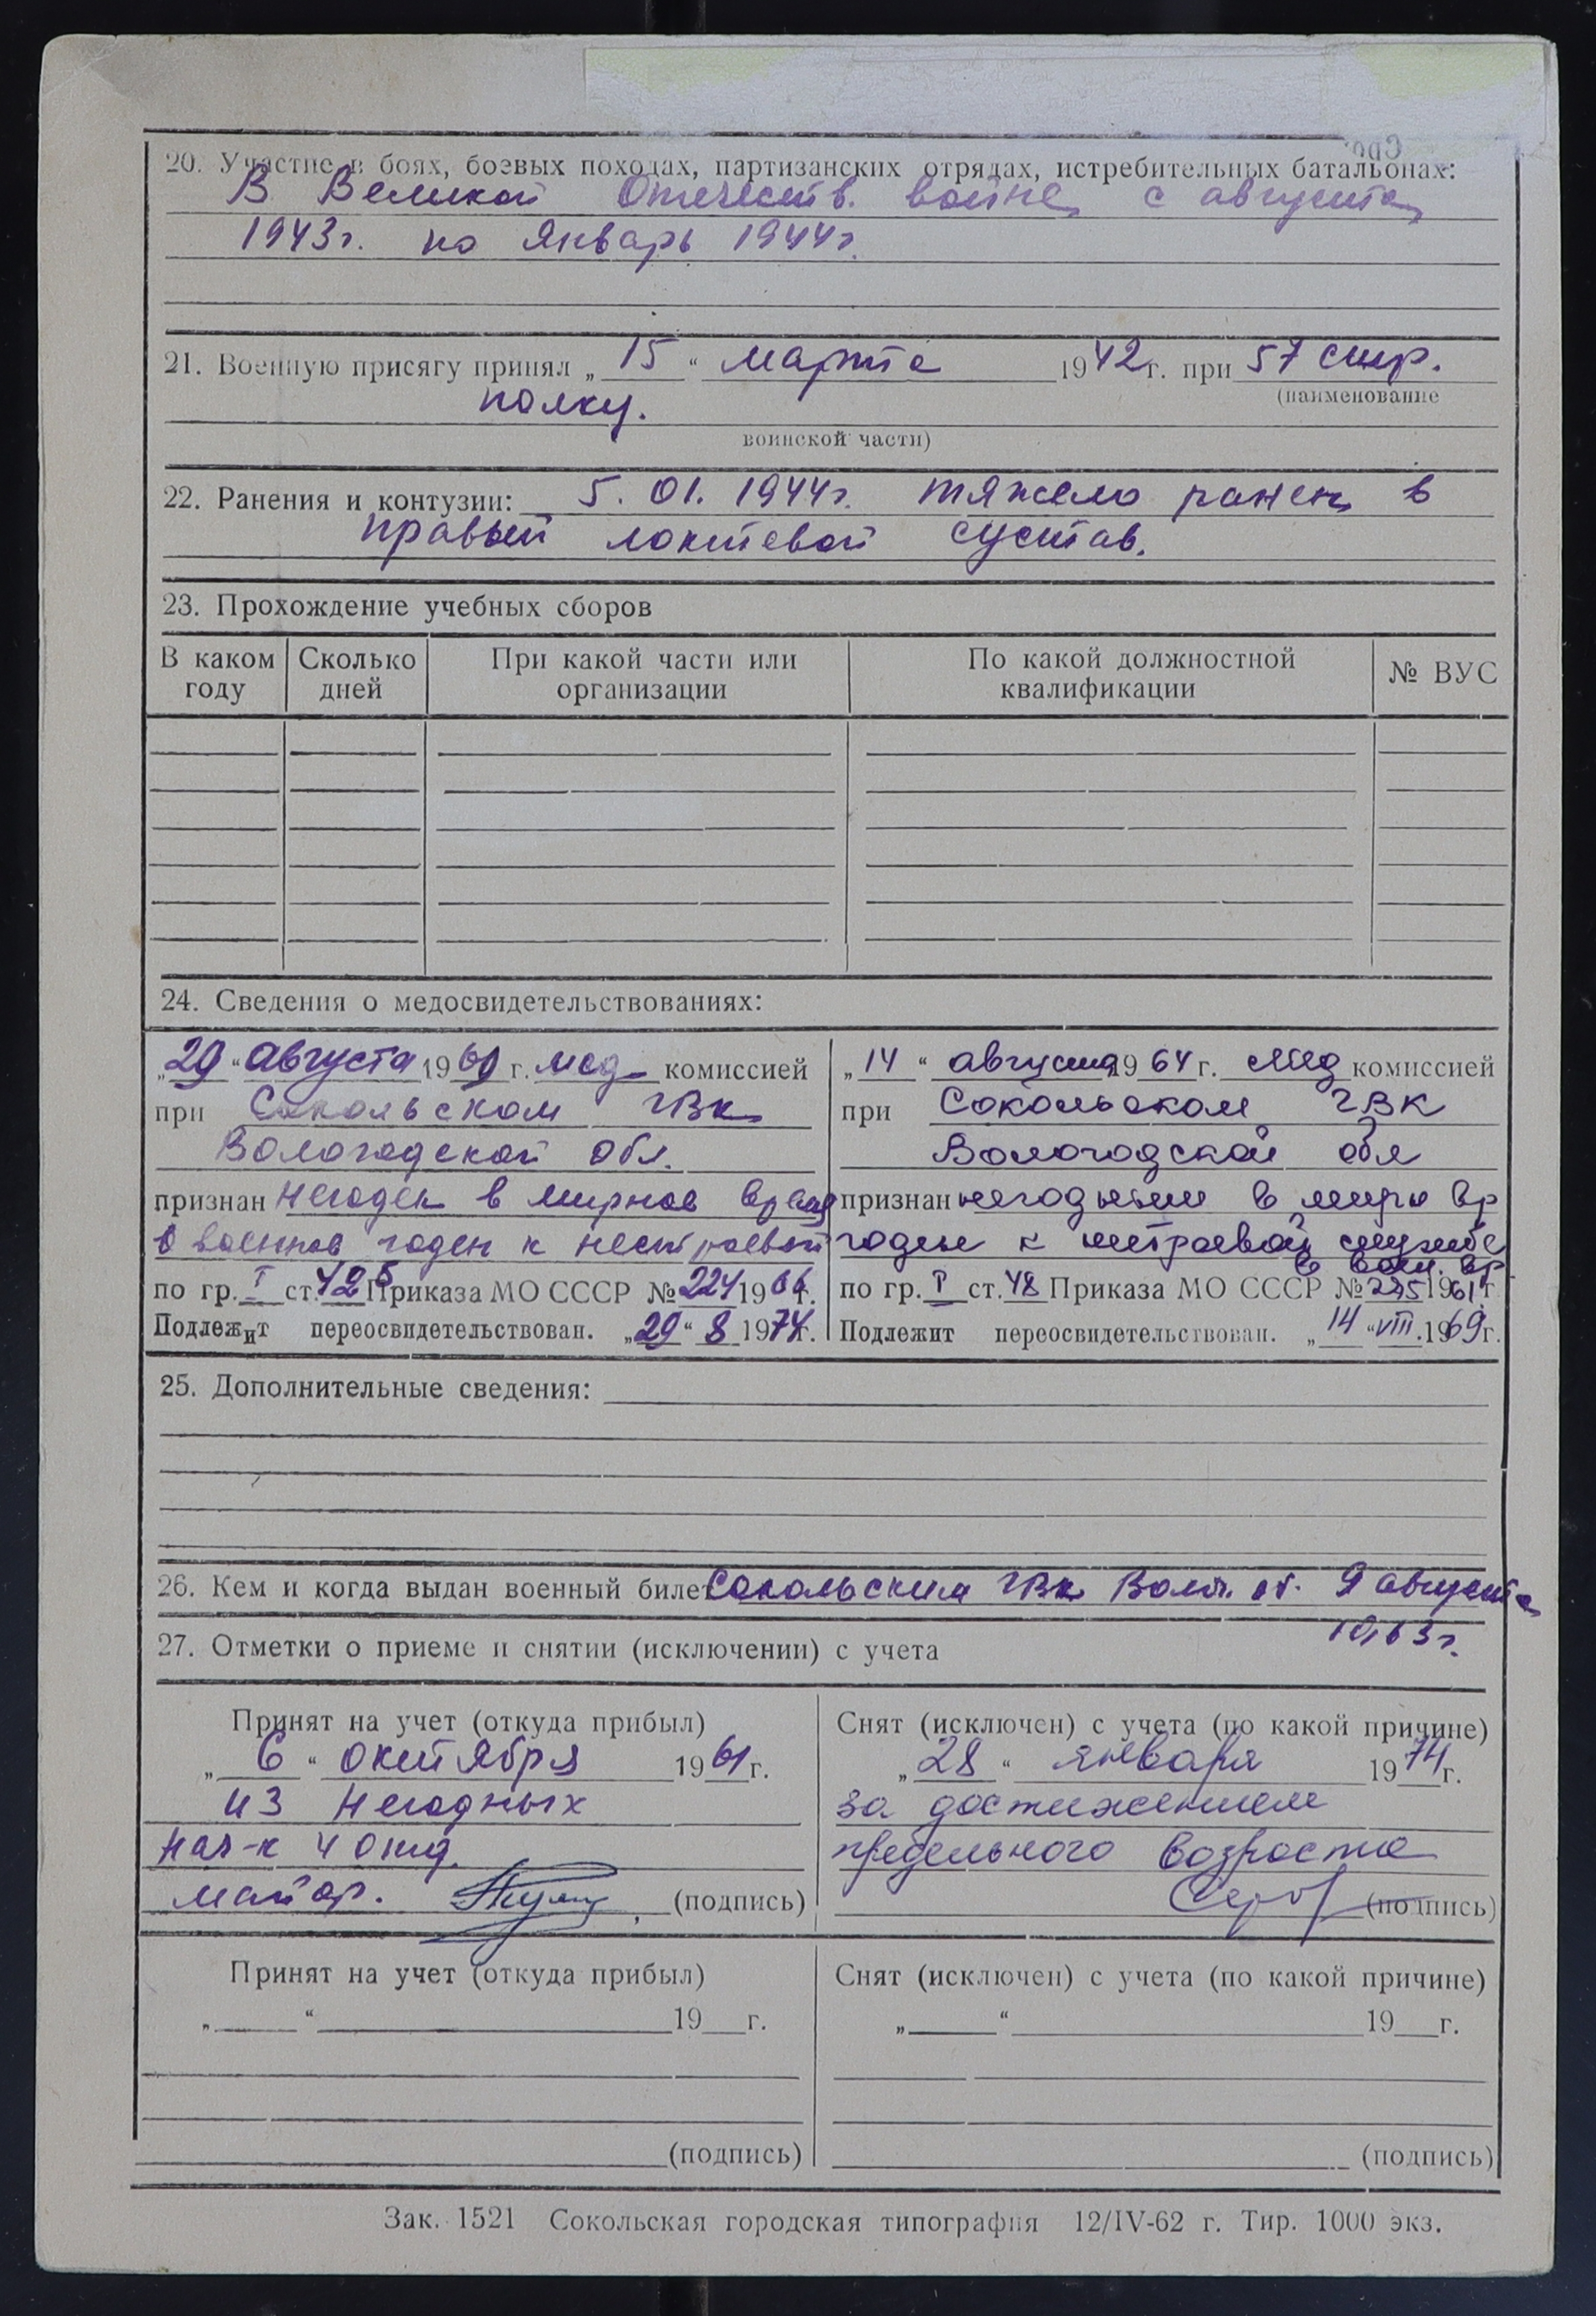 20. Участие в боях, боевых походах, партизанских отрядах, истребительных батальонах:
В Великой Отечеств. войне с августа
1943г. по январь 1944г.
21. Военную присягу принял „ 15 “ марта 1942г. при 57 стр.
(наименование
полку.
воинской части)
22. Ранения и контузии: 5. 01. 1944г. тяжело ранен в
правый локтевой сустав.
23. Прохождение учебных сборов
В каком году Сколько дней При какой части или организации По какой должностной квалификации № ВУС
24. Сведения о медосвидетельствованиях:
„29“ августа 19 г. мед комиссией
при Сокольском ГВК
Вологодской обл.
признан негоден в мирное время
в военное годен к нестроевой
по гр. I ст. Приказа МО СССР № 224 1966г.
Подлежит переосвидетельствован. „29“ 8 1974г.
„14“ августа 1964г. мед комиссией
при Сокольском ГВК
Вологодской обл
признан негодным в мирн вр
годен к нестроевой службе
в воен. вр
по гр. I ст. 48 Приказа МО СССР № 1961г
Подлежит переосвидетельствован. „14“ VIII.1969г.
25. Дополнительные сведения:
26. Кем и когда выдан военный билет Сокольским ГВК Волог. об. 9 августа
1963г.
27. Отметки о приеме и снятии (исключении) с учета
Принят на учет (откуда прибыл)
„ 6 “ октября 1961г.
из негодных
нач-к 4 отд.
майор. (подпись)
Снят (исключен) с учета (по какой причине)
„28“ января 1974г.
за достижением
предельного возраста
(подпись)
Принят на учет (откуда прибыл)
„ “ 19 г.
(подпись)
Снят (исключен) с учета (по какой причине)
„ “ 19 г.
(подпись)
Зак. 1521 Сокольская городская типография 12/IV-62 г. Тир. 1000 экз.